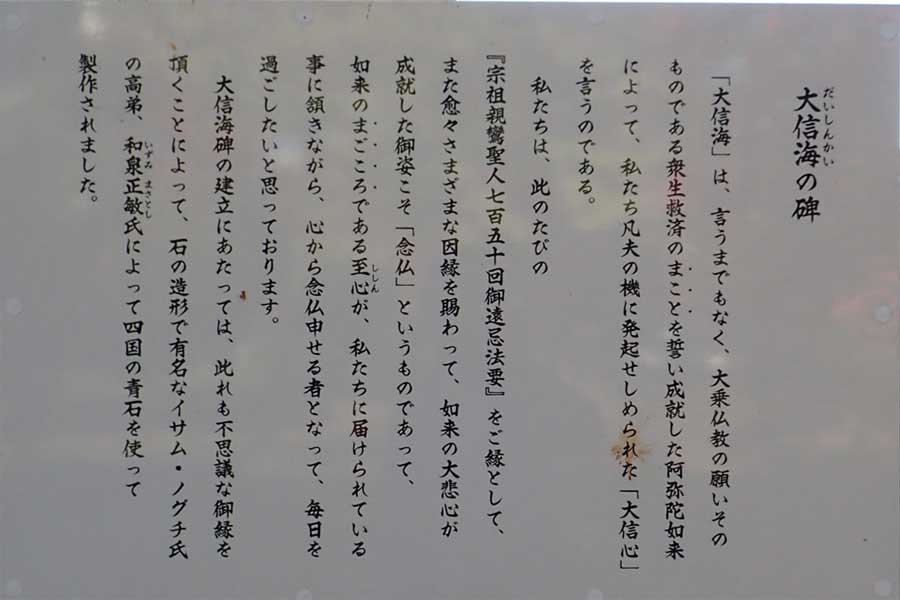 大信海の碑
「大信海」は、言うまでもなく、大乗仏教の願いその
ものである衆生救済のまことを誓い成就した阿弥陀如来
によって、私たち凡夫の機に発起せしめられた「大信心」
を言うのである。
私たちは、此のたびの
『宗祖親鸞聖人七百五十回御遠忌法要』をご縁として、
また愈々さまざまな因縁を賜わって、如来の大悲心が
成就した御姿こそ「念仏」というものであって、
如来のまごころである至心が、私たちに届けられている
事に頷きながら、心から念仏申せる者となって、毎日を
過ごしたいと思っております。
大信海碑の建立にあたっては、此れも不思議な御縁を
頂くことによって、石の造形で有名なイサム・ノグチ氏
の高弟、和泉正敏氏によって四国の青石を使って
製作されました。